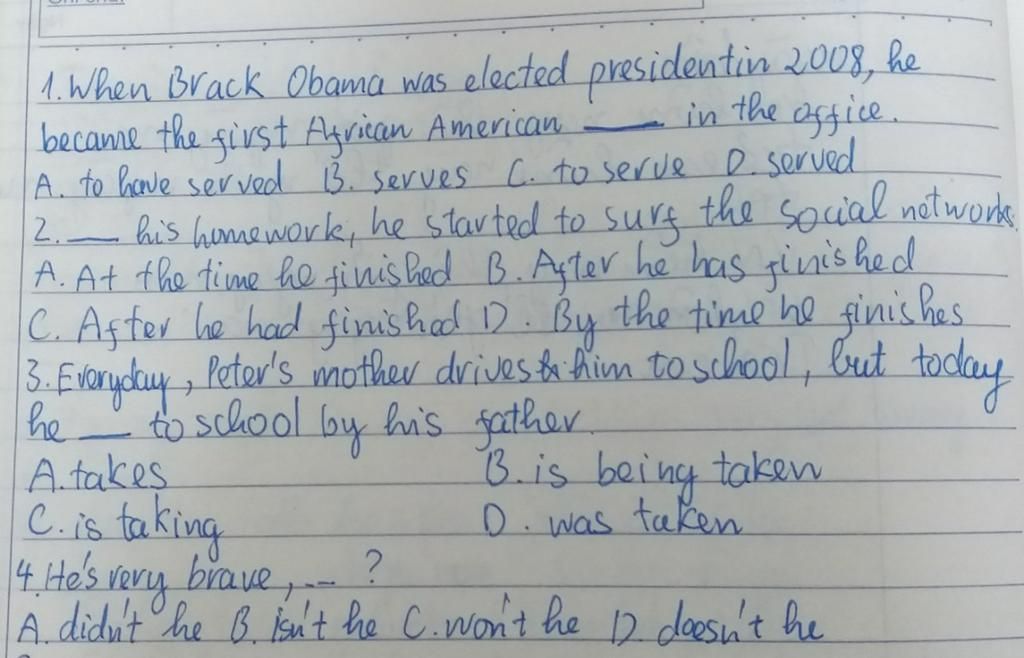 1. When Brack Obama was elected presidentin 2008, he
became the first African American ___ in the office.
A. to have served B. serves C. to serve D. served
2. ___ his homework, he started to surf the social network.
A. At the time he finished B. After he has finished
C. After he had finished D. By the time he finishes
3. Everyday, Peter's mother drives him to school, but today
he ___ to school by his father.
A. takes B. is being taken
C. is taking D. was taken
4. He's very brave, --- ?
A. didn't he B. isn't he C. won't he D. doesn't he